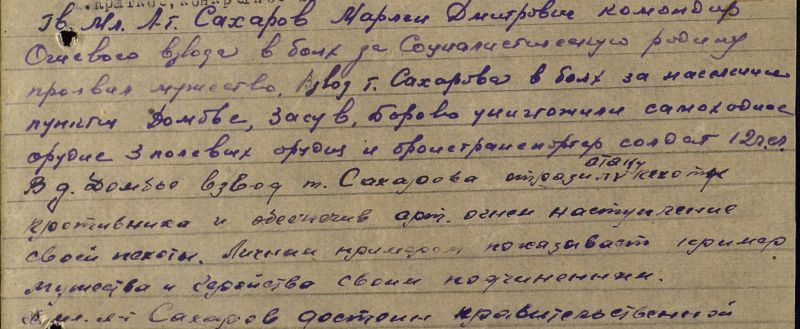 Гв. Мл. Л-т. Сахаров Марлен Дмитриевич командир
Огневого взвода в боях за Социалистическую родину
проявил мужество. Взвод т. Сахарова в боях за населенные
пункты Домбье, Засув, Борово уничтожили самоходное
орудие 3 полевых орудия и бронетранспортер солдат 12 чел.
В д. Домбье взвод т. Сахарова отразил атаку пехоты
противника и обеспечив арт. огнем наступление
своей пехоты. Личным примером показывает пример
мужества и геройства своим подчиненным.
мл. л-т Сахаров достоин правительственной